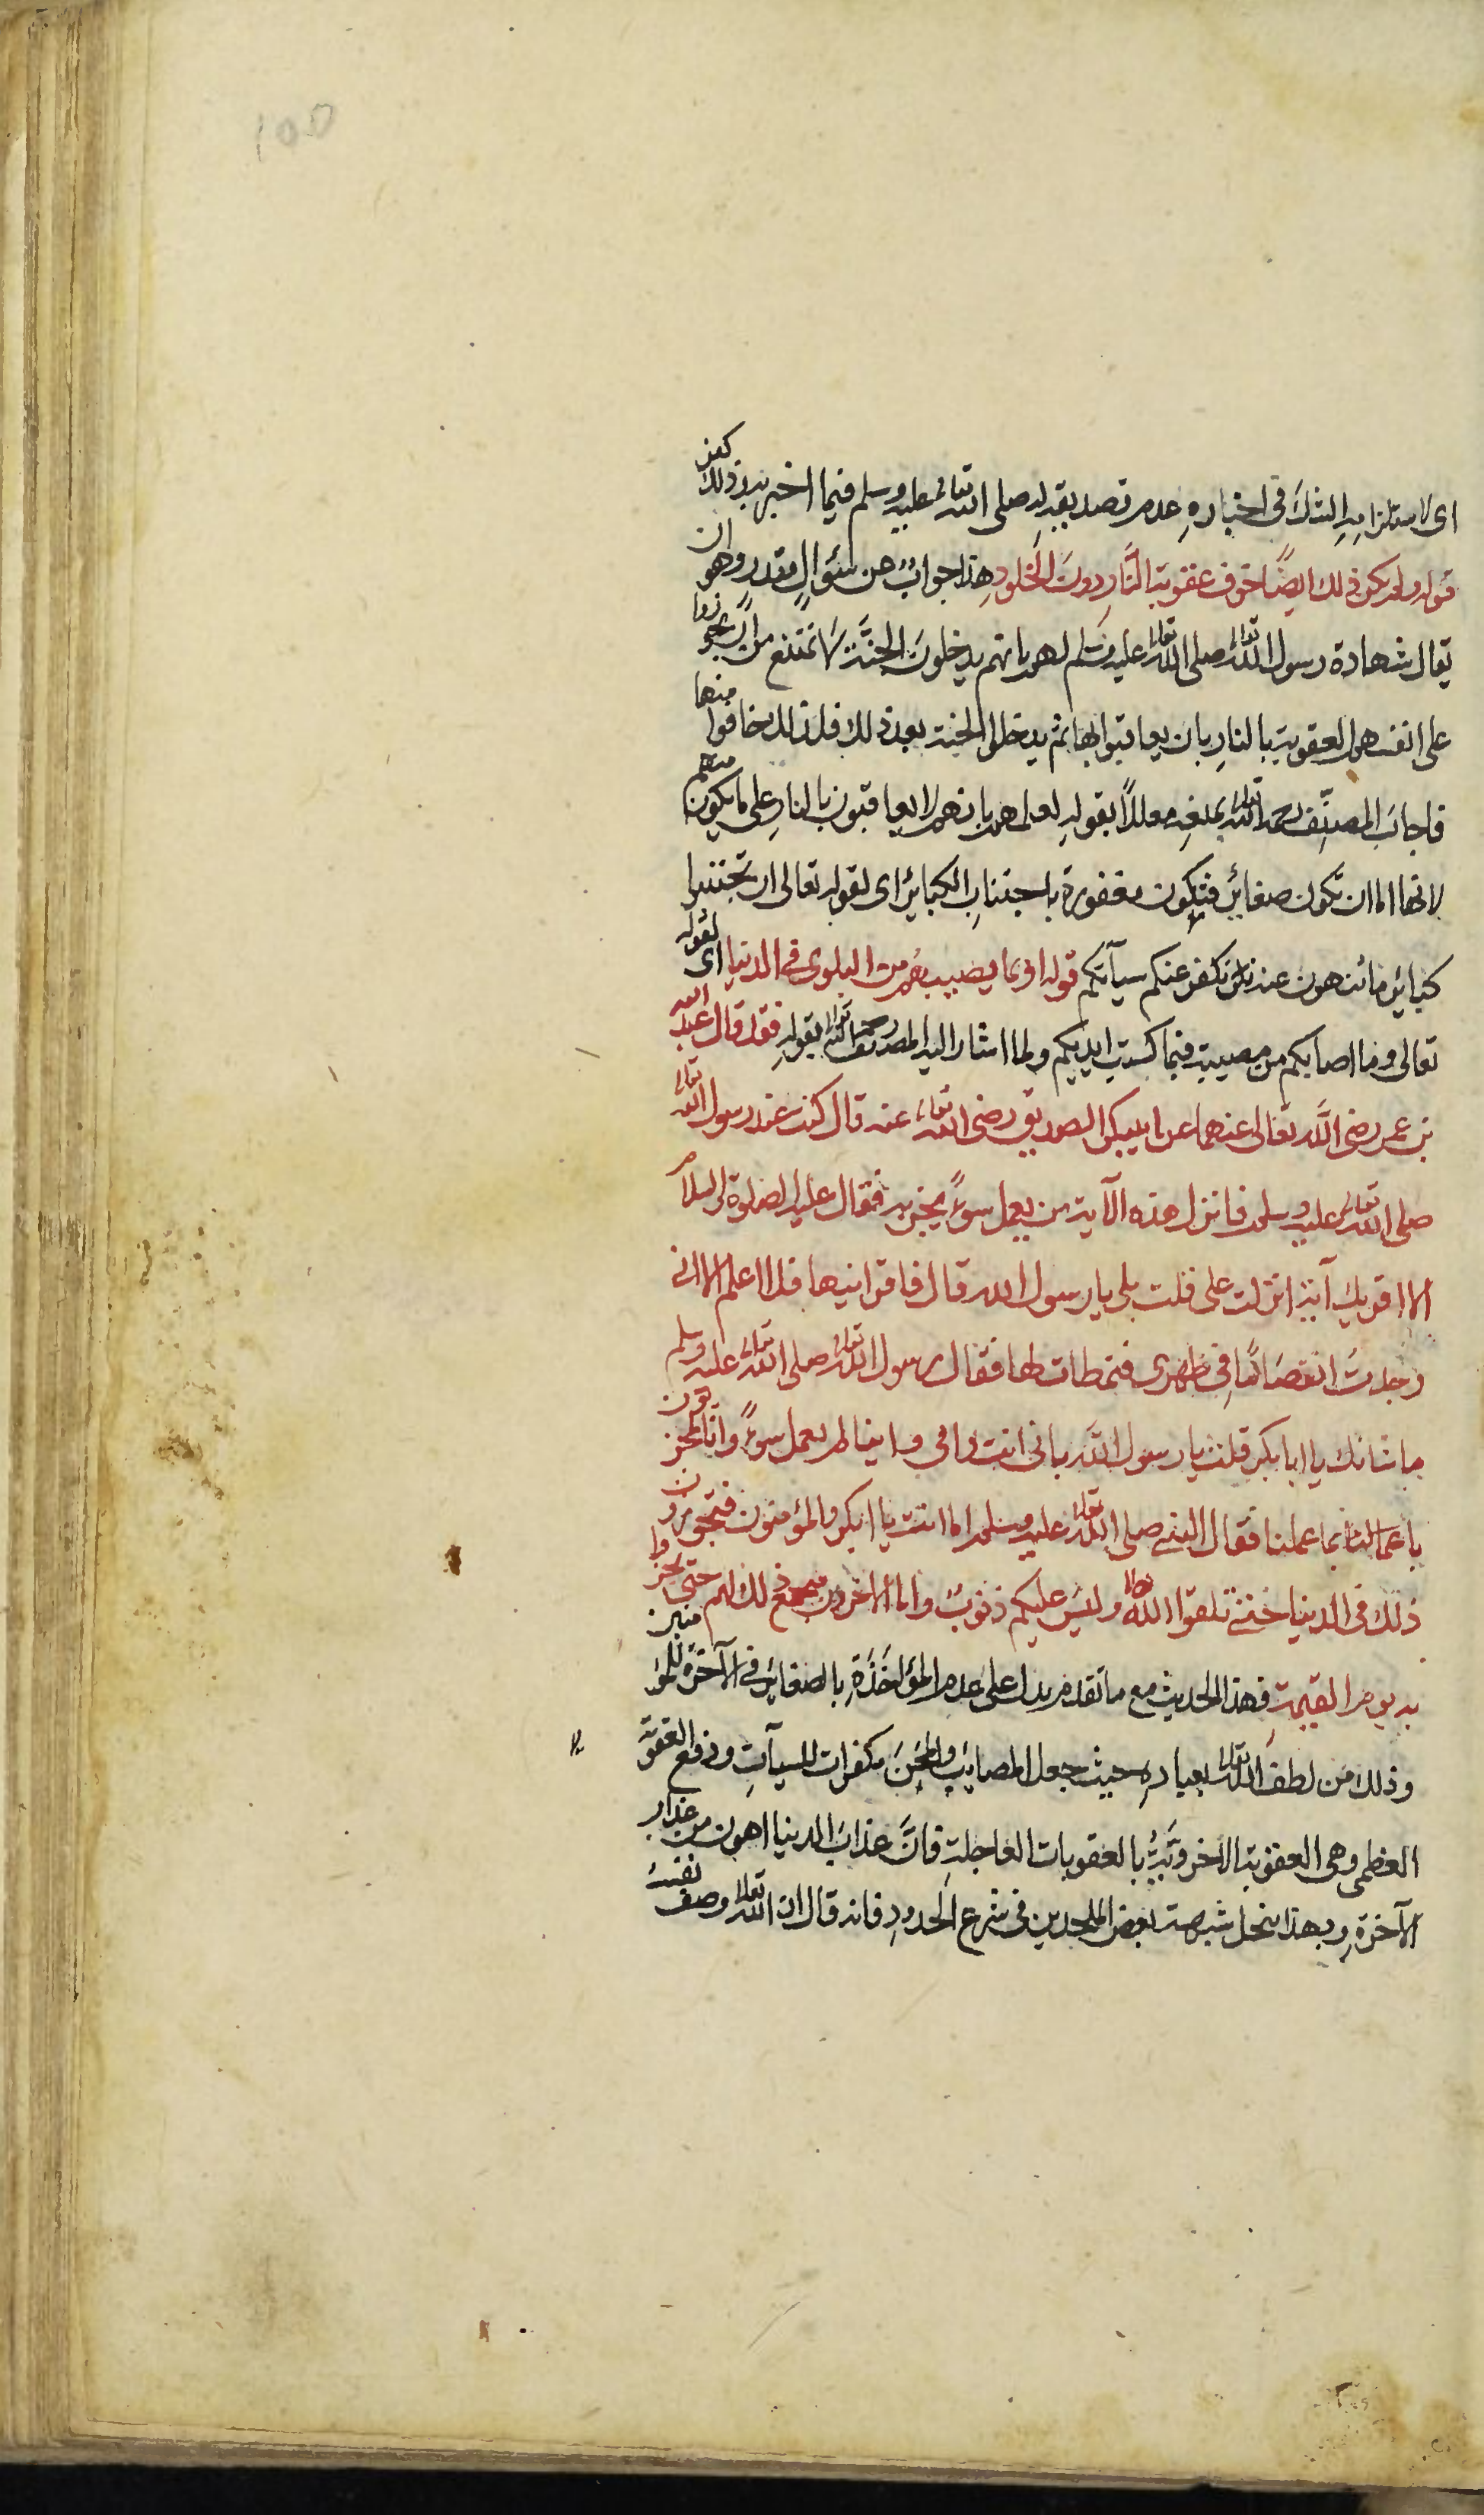 100
اى لاستلزامِهِ الشكَ فى اخبارهِ عدم تصديقهِ لهِ صلى الله تعالى عليه وسلم فيما اخبر به وذلك كفر
قوله ولم يكن ذلك ايضًا خوف عقوبة النَّارِ دونَ الخلودِ هذا جوابٌ عن سئوالٍ مقدرٍ وهو ان
يقال شهادة رسول الله تعالى صلى الله تعالى عليه وسلم لهم بانهم يدخلونَ الجنَّة لا تمتنع من ان يجوزوا
على انفسهم العقوبة بالنارِ بان يعاقبوا بها ثم يدخلوا الجنة بعد ذلك فلذلك خافوا منها
فاجابَ المصنِّف رحمه الله تعالى بمنعِهِ معللاً بقولهِ لعلمهم بانهم لا يعاقبون بالنارِ على ما يكون منهم
لانها اما ان تكون صغائرَ فتكون مغفورة باجتنابِ الكبائرِ اى لقوله تعالى ان تجتنبوا
كبائر ما تنهون عنه نكفر عنكم سيآتكم قوله او بما يصيبهم من البلوى فى الدنيا اى لقوله
تعالى وما اصابكم من مصيبة فبما كسبت ايديكم ولما اشار اليه المصنف رحمه الله تعالى بقولهِ فقد قال عبد الله
بن عمر رضى الله تعالى عنهما عن ابيبكر الصديق رضى الله تعالى عنه قال كنت عند رسول الله تعالى
صلى الله تعالى عليه وسلم فانزل هذه الآية من يعمل سوءً يجز به فقال عليه الصلوة والسلام
الا اقريك آية انزلت على قلت بلى يا رسول الله قال فاقرانيها فلا اعلم الا انى
وجدتُ انفصامًا فى ظهرى فتمطات لها فقال رسول الله تعالى صلى الله تعالى عليه وسلم
ما شانك يا ابا بكر قلت يا رسول الله بابى انت وامى واينا لم يعمل سوءً وانا لمجزيون
باعمالنا بما عملنا فقال النبى صلى الله تعالى عليه وسلم اما انت يا ابكر والمؤمنون فتجزون
ذلك فى الدنيا حتى تلقوا الله تعالى وليس عليكم ذنوبٌ واما الاخرون فيجمع ذلك لهم حتى يجزوا
به يوم القيمة فهذا الحديث مع ما تقدم يدل على عدم المؤاخَذَةِ بالصغائر فى الآخرة للمؤمنين
وذلك من لطف الله تعالى بعبادهِ حيث جعل المصائبَ والمحَنَ مكفرات للسيآتِ ودفع العقوبة
العظمى وهى العقوبة الاخرويَّةُ بالعقوبات العاجلةِ فانَّ عذابَ الدنيا اهون من عذاب
الآخرةِ وبهذا ينحل شبهة بعض الملحدين فى شرع الحدودِ فانه قال ان الله تعالى وصف نفسَهُ